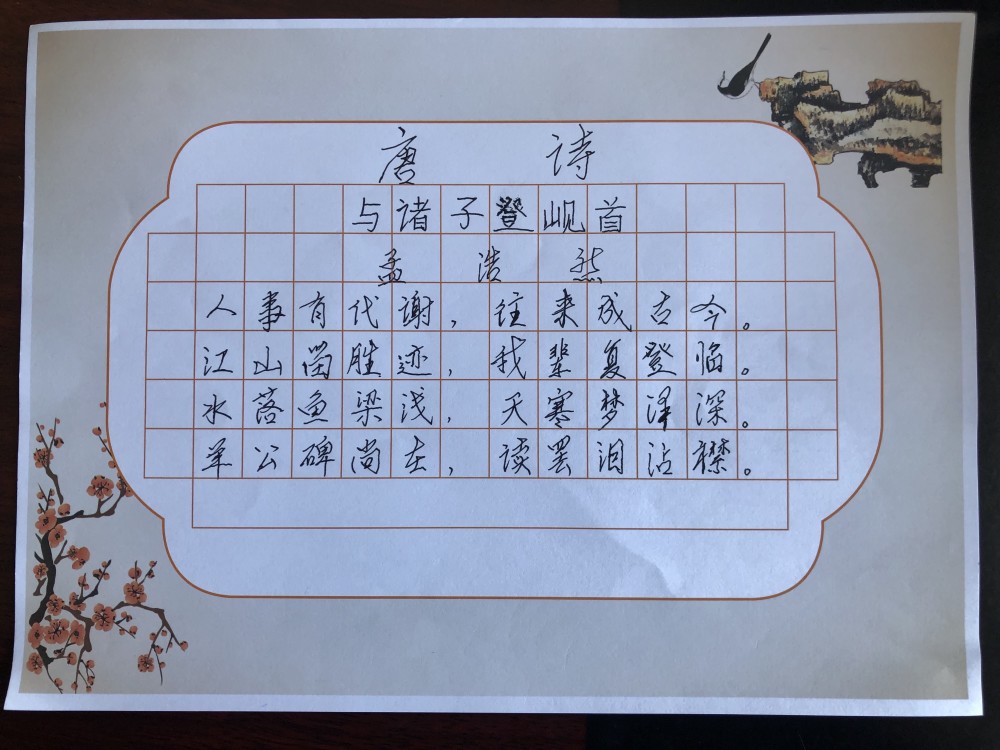 唐 诗
与诸子登岘首
孟 浩 然
人事有代谢，往来成古今。
江山留胜迹，我辈复登临。
水落鱼梁浅，天寒梦泽深。
羊公碑尚在，读罢泪沾襟。